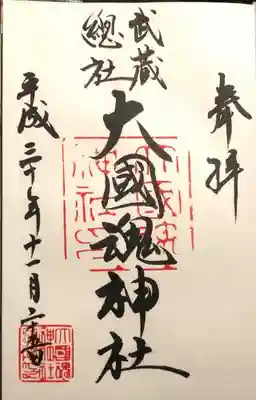 奉拝
武蔵
總社
大國魂神社
平成三十年十一月二十五日